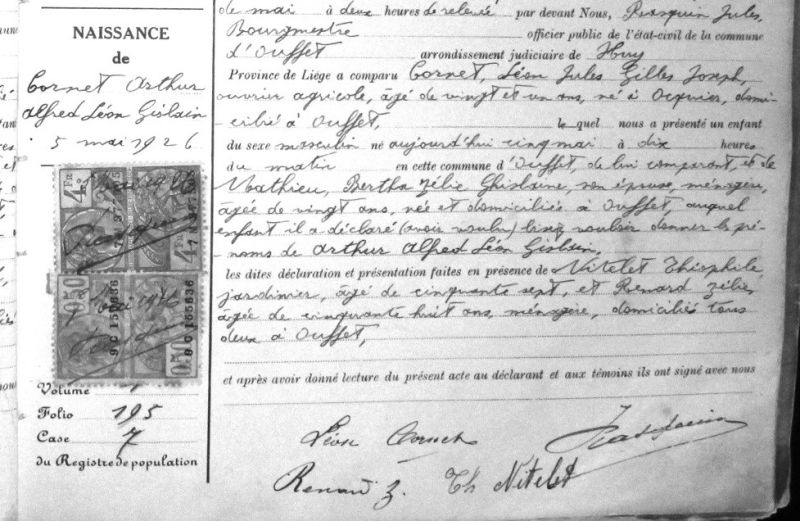 NAISSANCE
de
Cornet Arthur
Alfred Léon Gislain
5 mai 1926
4 Frs
4 Frs
0,50
0,50
9C 155636
9C 155636
Volume
Folio 195
Case 7
du Registre de population
de mai à deux heures de relevée par devant Nous, Rasquin Jules,
Bourgmestre officier public de l'état-civil de la commune
d'Ouffet arrondissement judiciaire de Huy
Province de Liège a comparu Cornet, Léon Jules Gilles Joseph,
ouvrier agricole, âgé de vingt et un ans, né à Ocquier, domi-
cilié à Ouffet, lequel nous a présenté un enfant
du sexe masculin né aujourd'hui cinq mai à dix heures
du matin en cette commune d'Ouffet, de lui comparant, et de
Mathieu, Bertha Zélie Ghislaine, son épouse, ménagère,
âgée de vingt ans, née et domiciliée à Ouffet, auquel
enfant il a déclaré (avoir voulu) lisez vouloir donner les pré-
noms de Arthur Alfred Léon Gislain,
les dites déclaration et présentation faites en présence de Nitelet Théophile,
jardinier, âgé de cinquante sept, et Renard Zélie,
âgée de cinquante huit ans, ménagère, domiciliés tous
deux à Ouffet,
et après avoir donné lecture du présent acte au déclarant et aux témoins ils ont signé avec nous
Léon Cornet
Rasquin
Renard Z. Th Nitelet